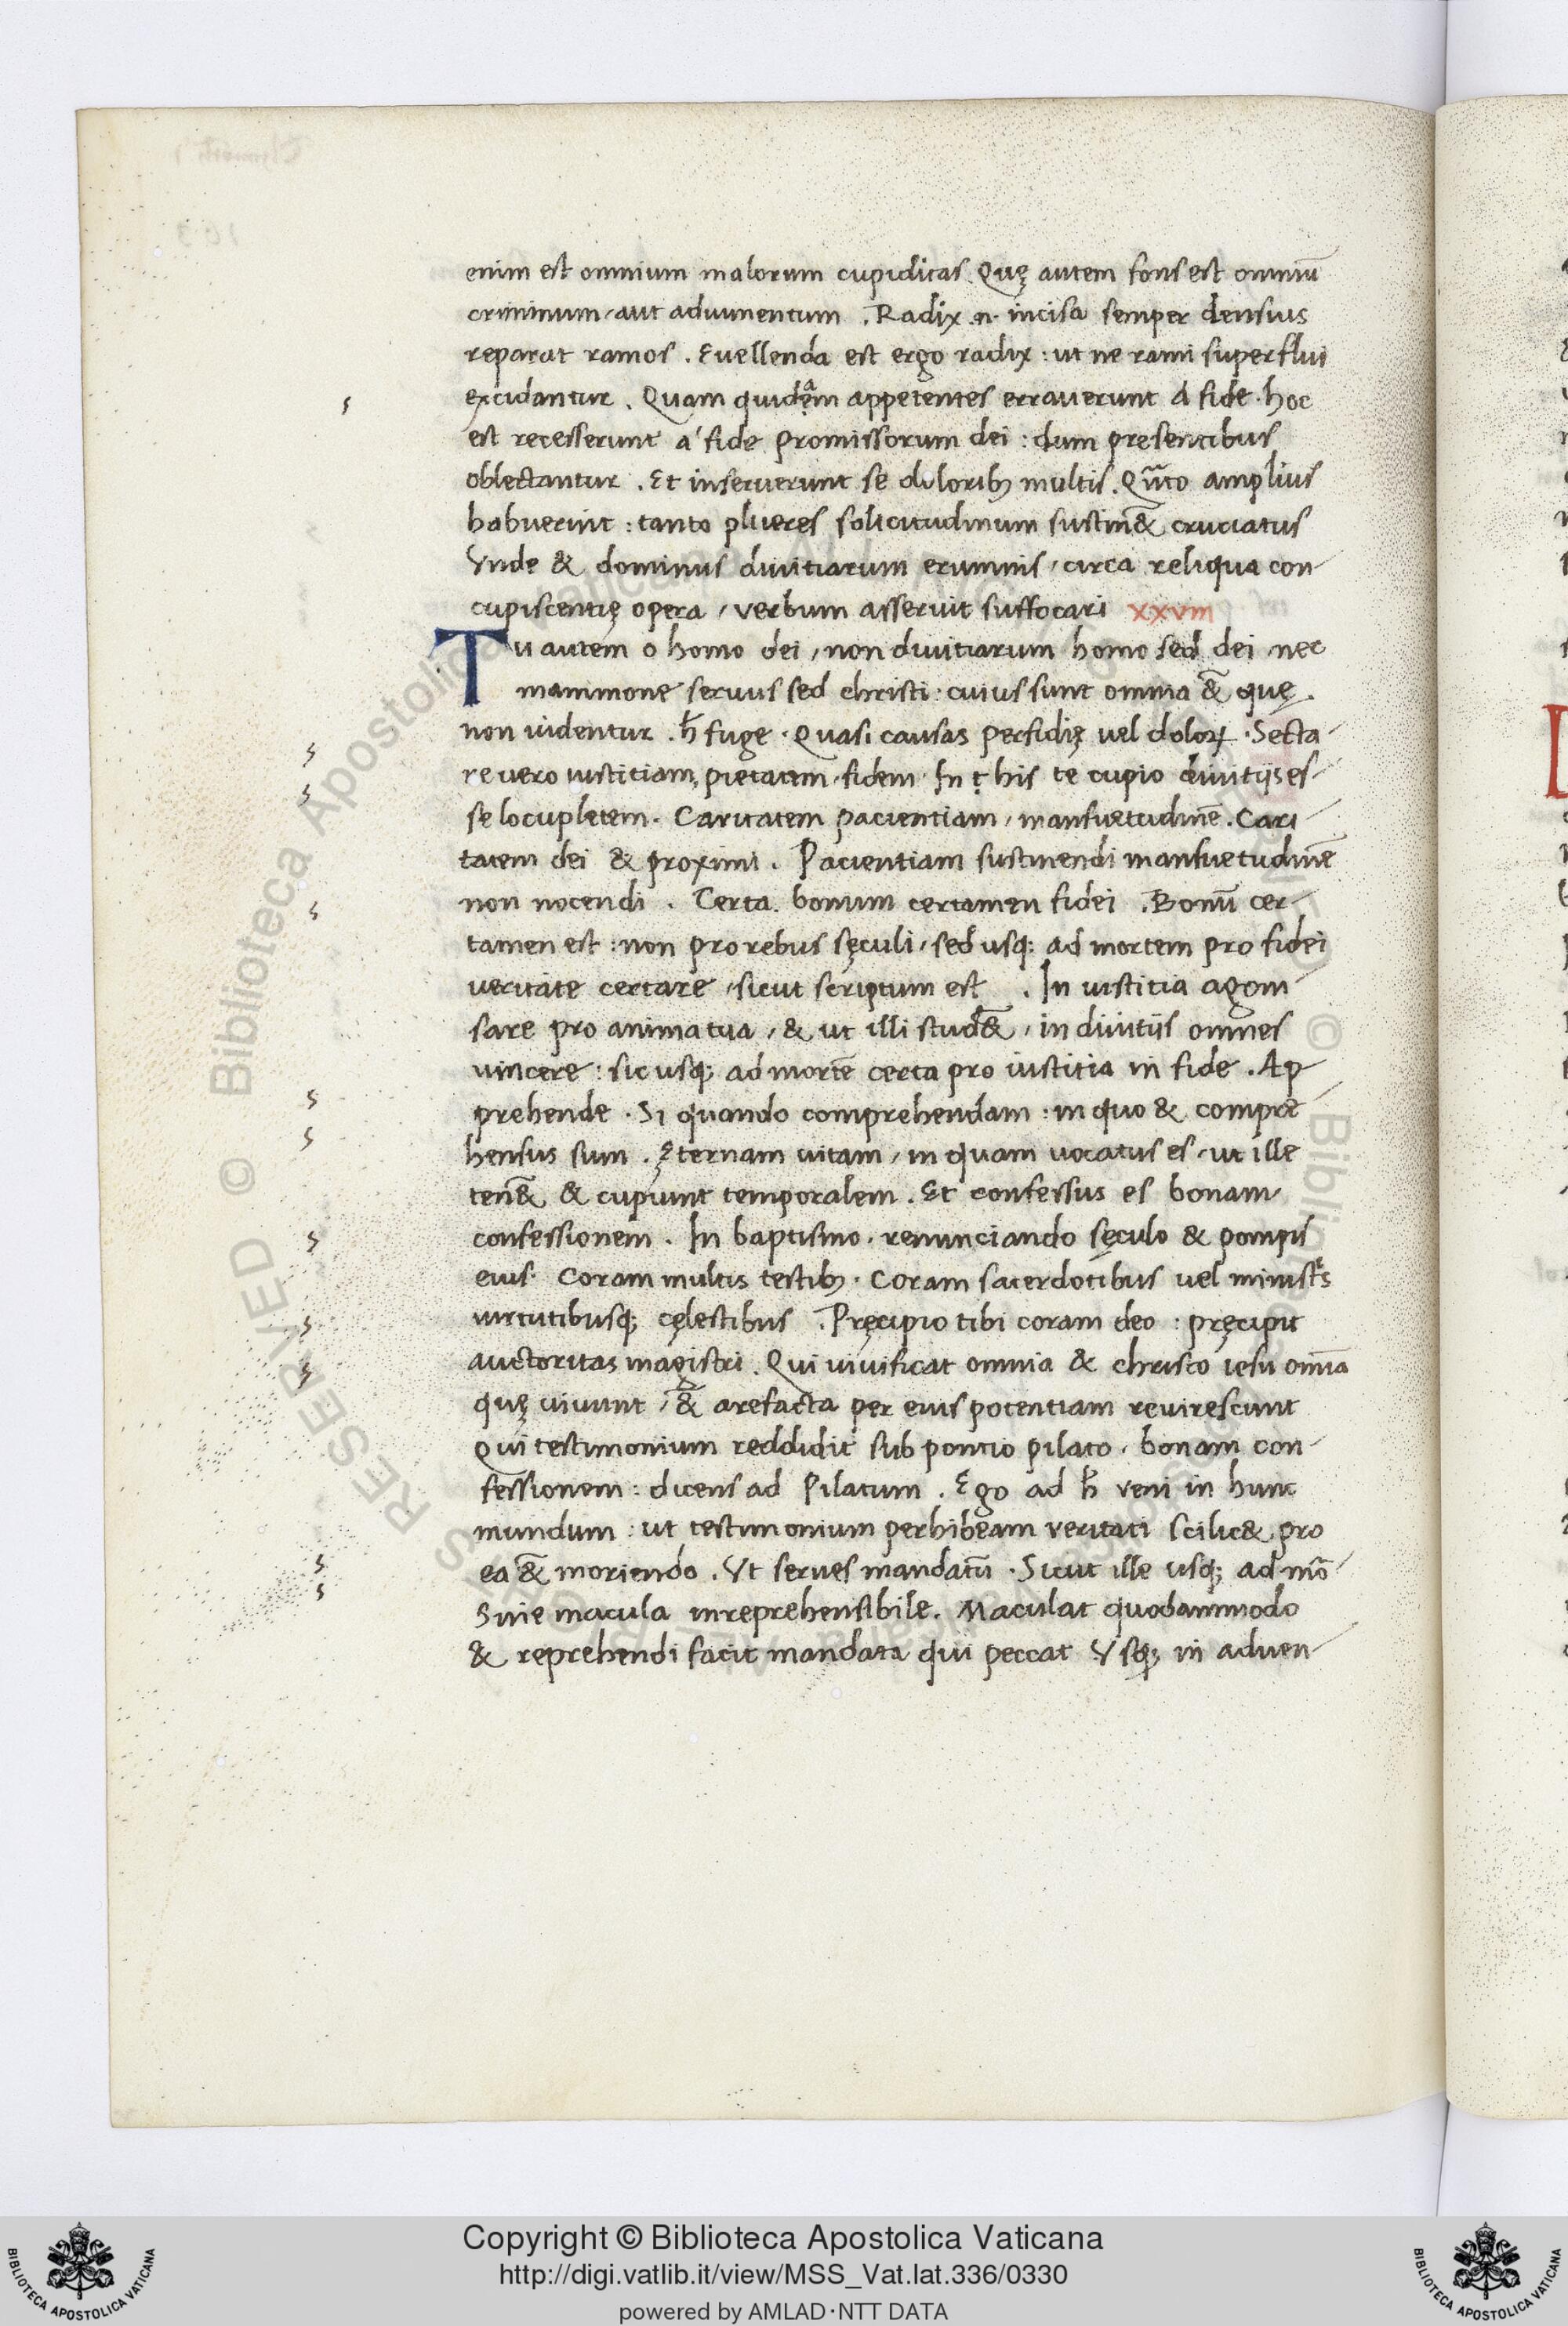 enim est omnium malorum cupiditas. Quę autem fons est omniū
criminum, aut adiumentum. Radix .n. incisa semper densius
reparat ramos. Euellenda est ergo radix: ut ne rami superflui
excidantur. Quam quidem appetentes errauerunt a fide. hoc
est recesserunt a' fide promissorum dei: dum presentibus
oblectantur. Et inseruerunt se dolorib; multis. Qñto amplius
habuerint: tanto plures solicitudinum sustin&̃ cruciatus
Vnde & dominus diuitiarum erumnis, circa reliqua con-
cupiscentię opera, verbum asseruit suffocari xxviii
Tu autem o homo dei, non diuitiarum homo sed dei nec
mammone seruus sed christi: cuius sunt omnia &̃ quę.
non uidentur. h̄ fuge. Quasi causas perfidię uel doloꝝ. Secta-
re vero iustitiam, pietatem, fidem. In his te cupio diuitijs es-
se locupletem. Caritatem pacientiam, mansuetudinē. Cari
tatem dei & proximi. Pacientiam sustinendi mansuetudinē
non nocendi. Certa bonum certamen fidei. Bonū cer-
tamen est: non pro rebus sęculi, sed usq; ad mortem pro fidei
veritate certare, sicut scriptum est. In iustitia agoni-
sare pro anima tua, & ut illi stud&̃, in diuitijs omnes
uincere: sic usq; ad mortē certa pro iustitia in fide. Ap-
prehende. Si quando comprehendam: in quo & compre-
hensus sum. Ęternam uitam, in quam uocatus es, ut ille
ten&̃ & cupiunt temporalem. Et confessus es bonam
confessionem. In baptismo, renunciando sęculo & pompis
eius. Coram multis testib;. Coram sacerdotibus uel ministis
uirtutibusq; cęlestibus. Pręcipio tibi coram deo: pręcipit
auctoritas magistri. Qui uiuificat omnia & christo iesu omīa
quę uiuunt, &̃ arefacta per eius potentiam reuirescunt
Qui testimonium reddidit sub pontio pilato, bonam con-
fessionem: dicens ad Pilatum. Ego ad h̄ veni in hunc
mundum: ut testimonium perhibeam veritati scilic& pro
ea &̃ moriendo. Vt serues mandatū. Sicut ille usq; ad mō
Sine macula inreprehensibile. Maculat quodammodo
& reprehendi facit mandata qui peccat Vsq; in aduen-
Copyright © Biblioteca Apostolica Vaticana
http://digi.vatlib.it/view/MSS_Vat.lat.336/0330
powered by AMLAD·NTT DATA
BIBLIOTECA APOSTOLICA VATICANA
BIBLIOTECA APOSTOLICA VATICANA